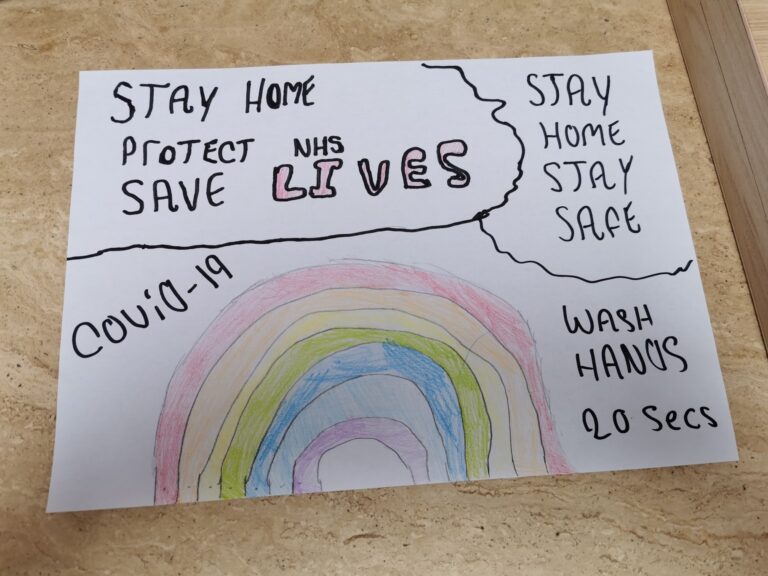 STAY HOME
PrOTECT NHS
SAVE LIVES
STAY
HOME
STAY
SAFE
COViD-19
WASH
HANDS
20 Secs